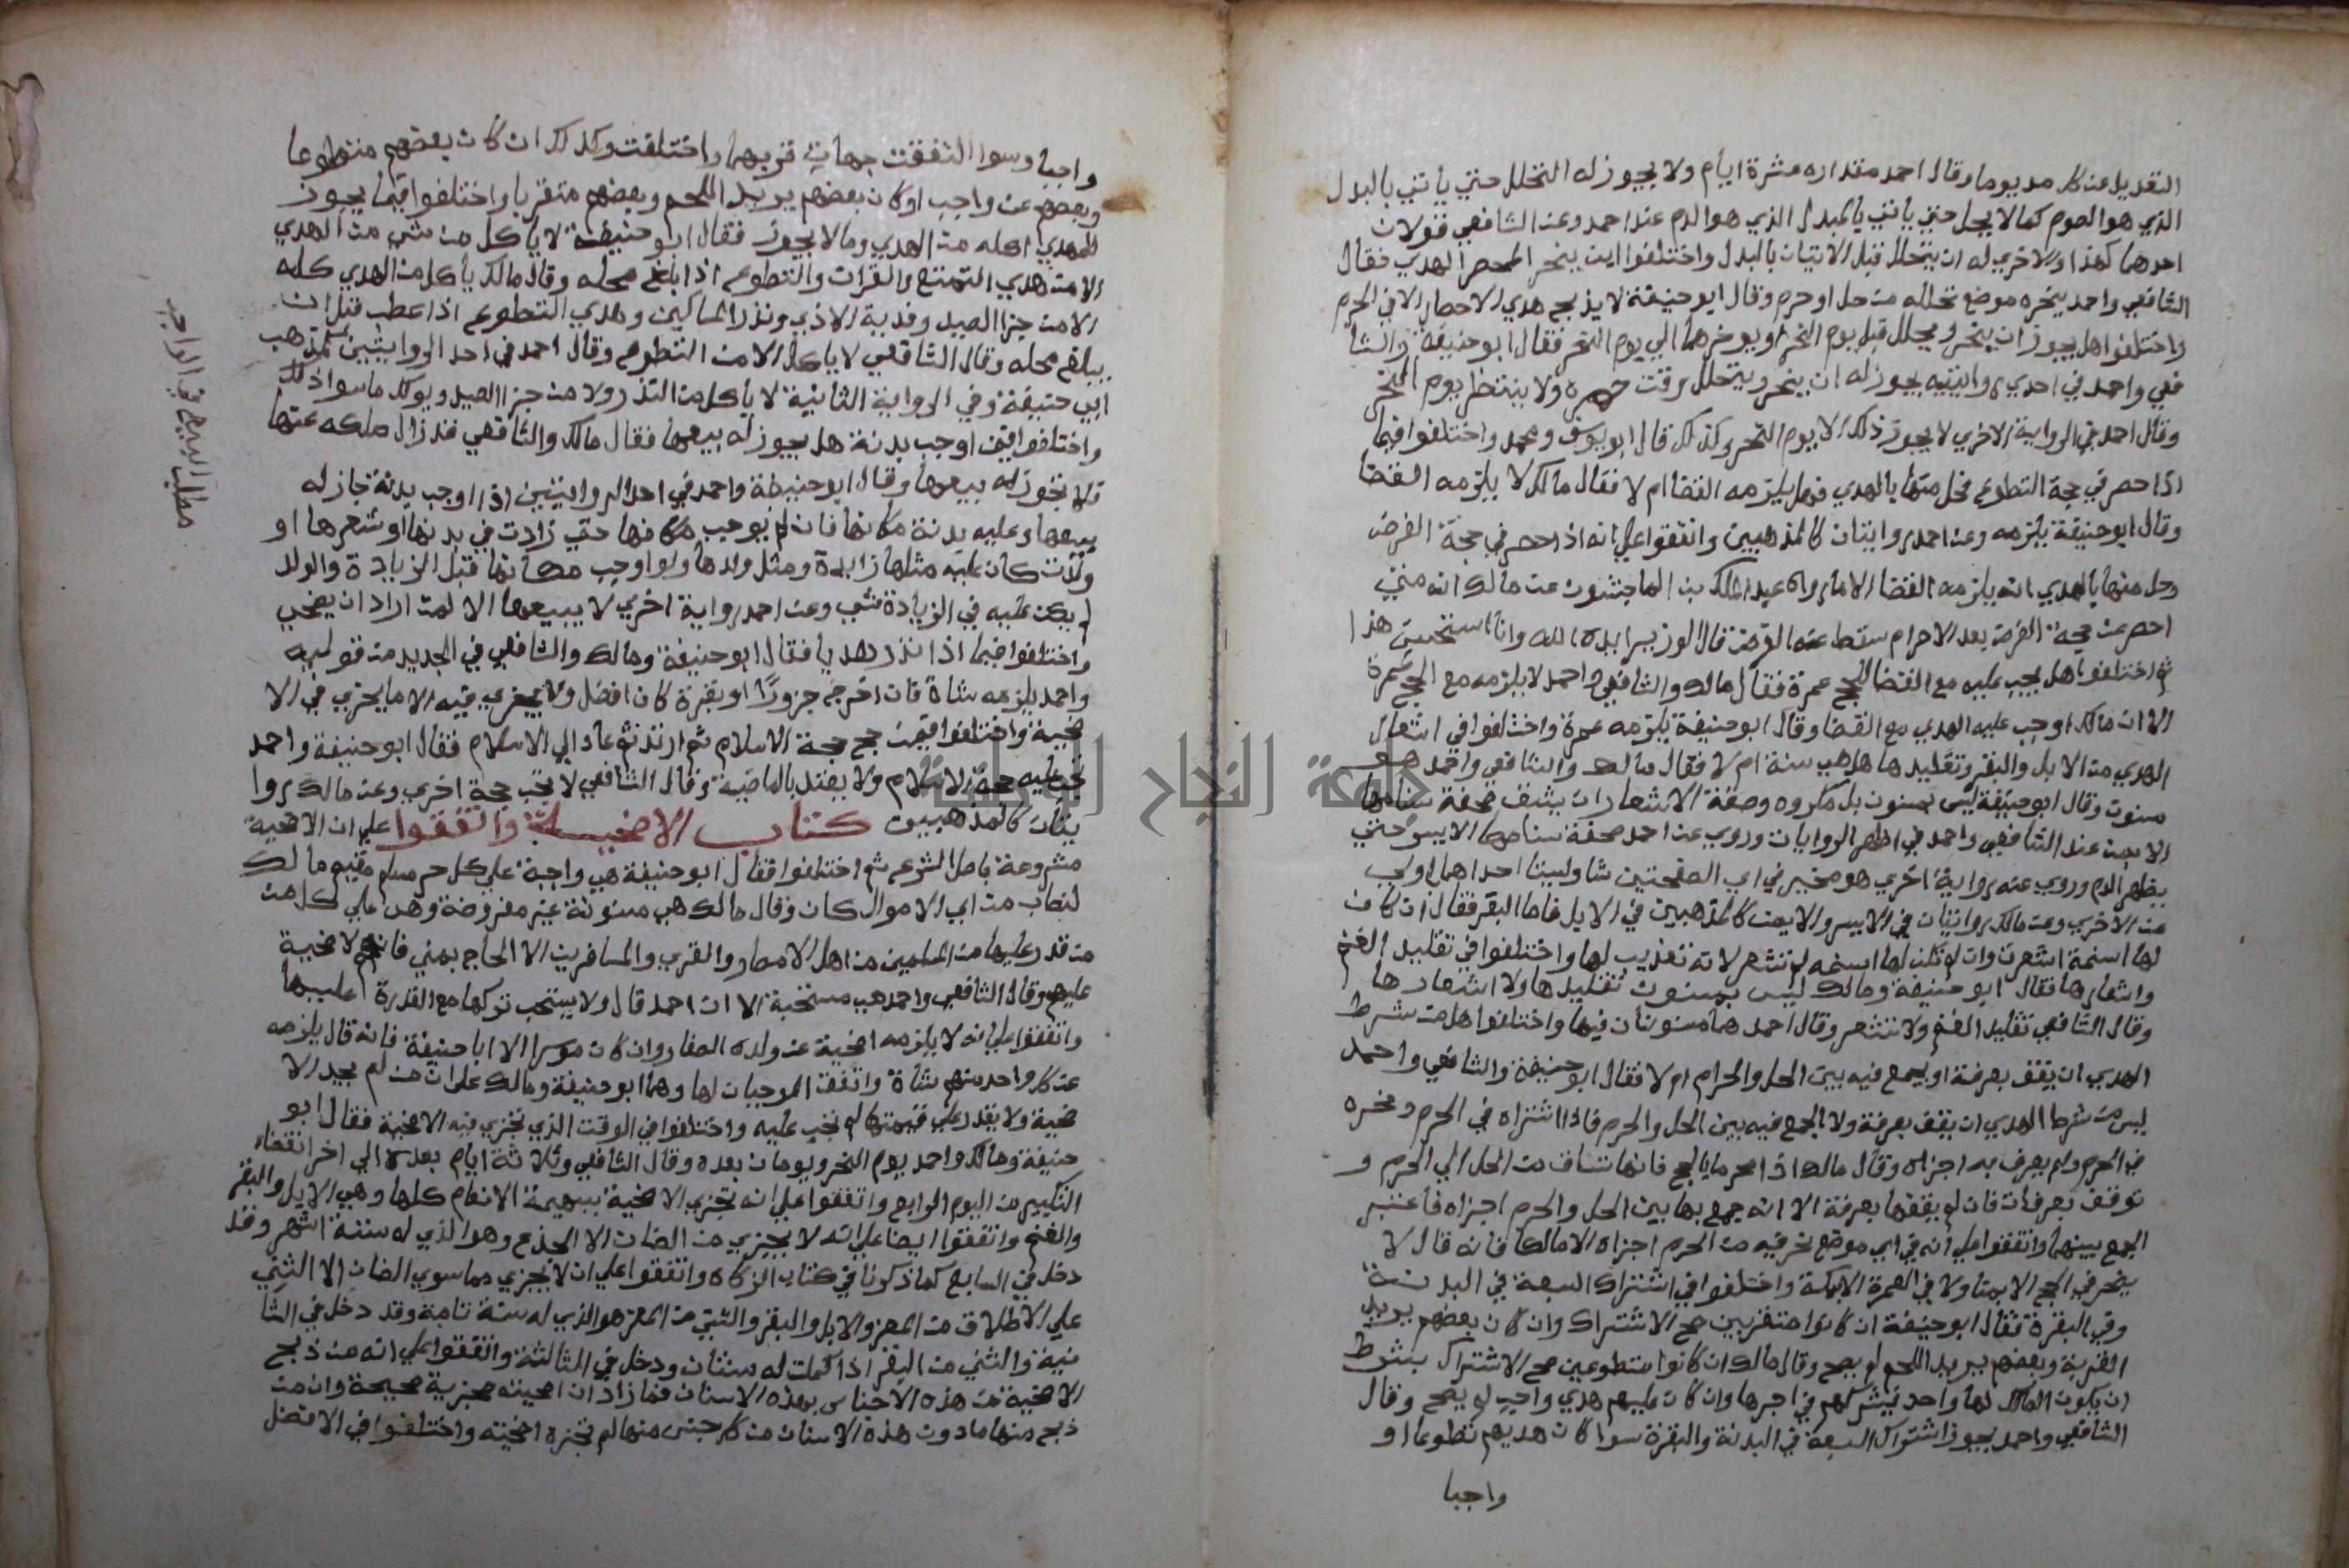 التعديل عن كل مد يوما وقال احمد مقداره عشرة ايام ولا يجوز له التحلل حتي ياتي بالبدل
الذي هو الصوم كما لا يحل حتي ياتي بالمبدل الذي هو الدم عند احمد وعن الشافعي قولان
احدهما كهذا والاخري له ان يتحلل قبل الاتيان بالبدل واختلفوا اين ينحر المحصر الهدي فقال
الشافعي واحمد ينحره موضع تحلله من حل او حرم وقال ابو حنيفة لا يذبح هدي الاحصار الا في الحرم
واختلفوا هل يجوز ان ينحر ويحلل قبل يوم النحر او يوخرهما الي يوم النحر فقال ابو حنيفة والشا
فعي واحمد في احدي روايتيه يجوز له ان ينحر ويتحلل وقت حصره ولا ينتظر يوم النحر
وقال احمد في الرواية الاخري لا يجوز ذلك الا يوم النحر وكذلك قال ابو يوسف ومحمد واختلفوا فيما
اذا حصر في حجة التطوع فحل منها بالهدي فهل يلزمه القضا ام لا فقال مالك لا يلزمه القضا
وقال ابو حنيفة يلزمه وعن احمد روايتان كالمذهبين واتفقوا علي انه اذا حصر في حجة الفرض
وحل منها بالهدي انه يلزمه القضا الا ما رواه عبد الملك بن الماجشون عن مالك انه متي
احصر عن حجة الفرض بعد الاحرام سقط عنه الفرض قال الوزير ايده الله وانا استحسن هذا
ثم اختلفوا هل يجب عليه مع القضا للحج عمرة فقال مالك والشافعي واحمد لا يلزمه مع الحج عمرة
الا ان مالك اوجب عليه الهدي مع القضا وقال ابو حنيفة يلزمه عمرة واختلفوا في اشعار
الهدي من الابل والبقر وتقليدها هل هي سنة ام لا فقال مالك والشافعي واحمد هو
مسنون وقال ابو حنيفة ليس بمسنون بل مكروه وصفة الاشعار ان يشق صفحة سنامها
الايمن عند الشافعي واحمد في اظهر الروايات وروي عن احمد صفحة سنامها الايسر حتي
يظهر الدم وروي عنه رواية اخري هو مخير في اي الصفحتين شا وليستا احداهما اولي
من الاخري وعن مالك روايتان في الايسر والايمن كالمذهبين في الابل فاما البقر فقال ان كانت
لها اسنمة اشعرت وان لم تكن لها اسنمه لم تشعر لانه تعذيب لها واختلفوا في تقليد الغنم
واشعارها فقال ابو حنيفة ومالك ليس بمسنون تقليدها ولا اشعارها
وقال الشافعي تقليد الغنم ولا تشعر وقال احمد هما مسنونان فيها واختلفوا هل من شرط
الهدي ان يقف بعرفة او يجمع فيه بين الحل والحرام او لا فقال ابو حنيفة والشافعي واحمد
ليس من شرط الهدي ان يقف بعرفة ولا الجمع فيه بين الحل والحرم فاذا اشتراه في الحرم ونحره
في الحرم ولم يعرف به اجزاه وقال مالك اذا احرما بالحج فانها تساق من الحل الي الحرم و
توقف بعرفات فان لم يقفها بعرفة الا انه جمع بها بين الحل والحرم اجزاه فاعتبر
الجمع بينهما واتفقوا علي انه في اي موضع نحر فيه من الحرم اجزاه الا مالكا فانه قال لا
ينحر في الحج الا بمنا ولا في العمرة الا بمكة واختلفوا في اشتراك السبعة في البدنة
وفي البقرة فقال ابو حنيفة ان كانوا متقربين صح الاشتراك وان كان بعضهم يريد
القربة وبعضهم يريد اللحم لم يصح وقال مالك ان كانوا متطوعين صح الاشتراك بشرط
ان يكون المالك لها واحد فيشركهم في اجرها وان كان عليهم هدي واجب لم يصح وقال
الشافعي واحمد يجوز اشتراك السبعة في البدنة والبقرة سوا كان هديهم تطوعا او
واجبا
واجبا وسوا اتفقت جهات قربهم او اختلفت وكذلك ان كان بعضهم متطوعا
وبعضهم عن واجب او كان بعضهم يريد اللحم وبعضهم متقربا واختلفوا فيما يجوز
للمهدي اكله من الهدي وما لا يجوز فقال ابو حنيفة لا ياكل من شي من الهدي
الا من هدي التمتع والقران والتطوع اذا بلغ محله وقال مالك ياكل من الهدي كله
الا من جزا الصيد وفدية الاذي ونذر المساكين وهدي التطوع اذا عطب قبل ان
يبلغ محله وقال الشافعي لا ياكل الا من التطوع وقال احمد في احد الروايتين كمذهب
ابي حنيفة وفي الرواية الثانية لا ياكل من النذر ولا من جزا الصيد ويوكل ما سوا ذلك
واختلفوا فيمن اوجب بدنة هل يجوز له بيعها فقال مالك والشافعي قد زال ملكه عنها
فلا تجوز له بيعها وقال ابو حنيفة واحمد في احد الروايتين اذا اوجب بدنة جاز له
بيعها وعليه بدنة مكانها فان لم يوجب مكانها حتي زادت في بدنها او شعرها او
ولدت كان عليه مثلها زايدة ومثل ولدها ولو اوجب مكانها قبل الزيادة والولد
لم يكن عليه في الزيادة شي وعن احمد رواية اخري لا يبيعها الا لمن اراد ان يضحي
واختلفوا فيما اذا نذر هديا فقال ابو حنيفة ومالك والشافعي في الجديد من قوليه
واحمد يلزمه شاة فان اخرج جزورا او بقرة كان افضل ولا يجزي فيه الا ما يجزي في الا
ضحية واختلفوا فيمن حج حجة الاسلام ثم ارتد ثم عاد الي الاسلام فقال ابو حنيفة واحمد
تجب عليه حجة الاسلام ولا يعتد بالماضية وقال الشافعي لا تجب حجة اخري وعن مالك روا
يتان كالمذهبين كتاب الاضحية واتفقوا علي ان الاضحية
مشروعة باصل الشرع ثم اختلفوا فقال ابو حنيفة هي واجبة علي كل حر مسلم مقيم مالك
لنصاب من اي الاموال كان وقال مالك هي مسنونة غير مفروضة وهي علي كل من
من قدر عليها من المسلمين من اهل الامصار والقري والمسافرين الا الحاج بمني فانهم لا ضحية
عليهم وقال الشافعي واحمد هي مستحبة الا ان احمد قال ولا يستحب تركها مع القدرة عليها
واتفقوا علي انه لا يلزمه اضحية عن ولده الصغار وان كان موسرا الا ابا حنيفة فانه قال يلزمه
عن كل واحد منهم شاة واتفق الموجبان لها وهما ابو حنيفة ومالك علي ان من لم يجد الا
ضحية ولا يقدر علي قيمتها لم تجب عليه واختلفوا في الوقت الذي تجزي فيه الاضحية فقال ابو
حنيفة ومالك واحمد يوم النحر ويومان بعده وقال الشافعي وثلاثة ايام بعده الي اخر انقضاء
التكبير من اليوم الرابع واتفقوا علي انه تجزي الاضحية ببهيمة الانعام كلها وهي الابل والبقر
والغنم واتفقوا ايضا علي انه لا يجزي من الضان الا الجذع وهو الذي له ستة اشهر وقد
دخل في السابع كما ذكرنا في كتاب الزكاه واتفقوا علي ان لا يجزي مما سوي الضان الا الثني
علي الاطلاق من المعز والابل والبقر والثني من المعز هو الذي له سنة تامة وقد دخل في الثا
نية والثني من البقر اذا كملت له سنتان ودخل في الثالثة واتفقوا علي انه من ذبح
الاضحية من هذه الاجناس بهذه الاسنان فما زاد ان اضحيته مجزية صحيحة وان من
ذبح منها ما دون هذه الاسنان من كل جنس منها لم تجزه اضحيته واختلفوا في الافضل
مطلب البيع في الواجب
جامعة النجاح الوطنية